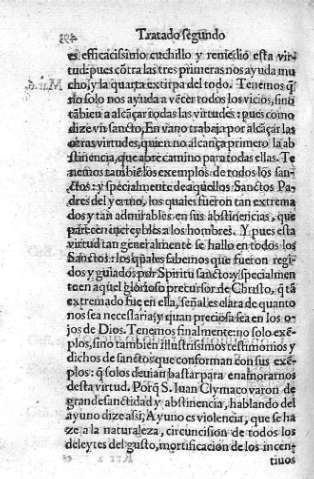 Tratado segundo
es efficacissimo cuchillo y remedio esta vir-
tud: pues cõtra las tres primeras nos ayuda mu
cho, y la quarta extirpa del todo. Tenemos q̃
no solo nos ayuda a vẽcer todos los vicios, sino
tãbien a alcãçar todas las virtudes: pues como
dize vn sancto, En vano trabaja por alcãçar las
otras virtudes, quien no alcança primero la ab
stinencia, que abre camino para todas ellas. Te
nemos tambiẽ los exemplos de todos los san-
ctos: y specialmente de aquellos Sanctos Pa-
dres del yermo, los quales fueron tan extrema
dos y tan admirables en sus abstinencias, que
parecen increybles a los hombres. Y pues esta
virtud tan generalmente se hallo en todos los
Sanctos: los quales sabemos que fueron regi-
dos y guiados por Spiritu sancto: y specialmen
te en aquel glorioso precursor de Christo, q̃ tã
extremado fue en ella, señal es clara de quanto
nos sea necessaria, y quan preciosa sea en los o-
jos de Dios. Tenemos finalmente: no solo exẽ-
plos, sino tambien illustrissimos testimonios y
dichos de sanctos que conforman con sus exẽ-
plos: q̃ solos deuian bastar para enamorarnos
desta virtud. Porq̃ S. Iuan Clymaco varon de
grande sanctidad y abstinencia, hablando del
ayuno dize assi; Ayuno es violencia, que se ha
ze a la naturaleza, circuncision de todos los
deleytes del gusto, mortificación de los incen-
tiuos